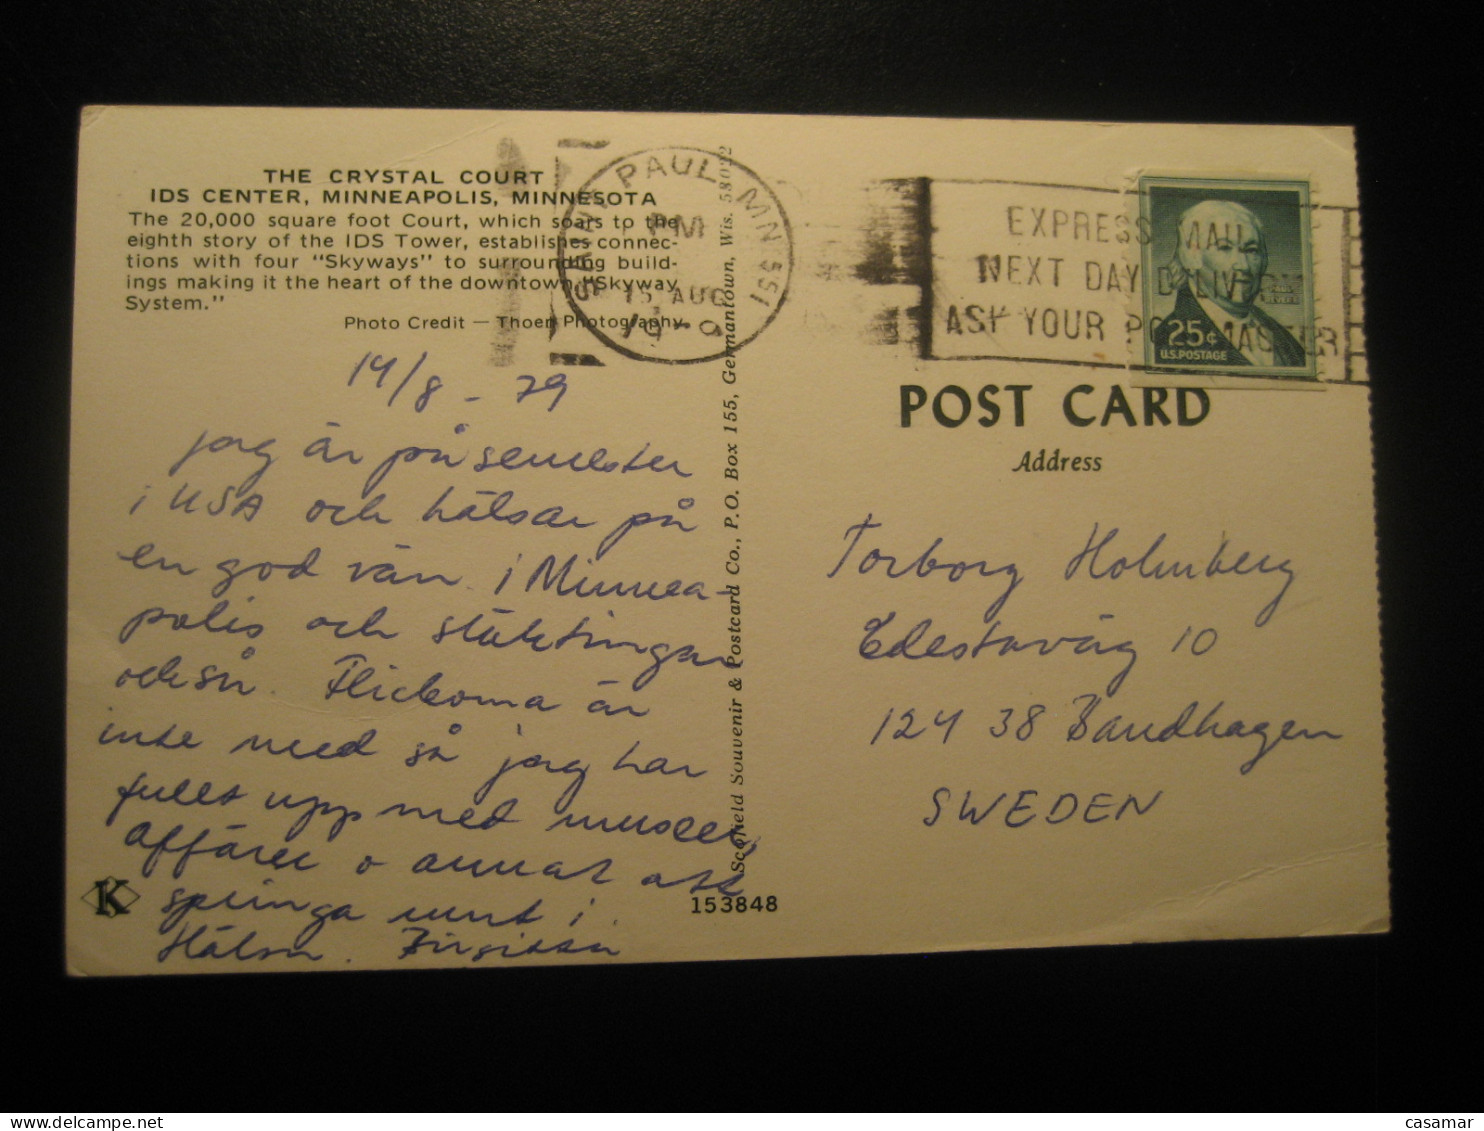 THE CRYSTAL COURT
IDS CENTER, MINNEAPOLIS, MINNESOTA
The 20,000 square foot Court, which soars to the
eighth story of the IDS Tower, establishes connec-
tions with four "Skyways" to surrounding build-
ings making it the heart of the downtown "Skyway
System."
Photo Credit — Thoen Photography
14/8 - 79
jag är på semester
i USA och hälsar på
en god vän i Minnea-
polis och
också. Flickorna är
inte med så jag har
fullt upp med museer,
affärer o annat att
springa runt i.
Hälsn. Birgitta
K
153848
Scofield Souvenir & Postcard Co., P.O. Box 155, Germantown, Wis. 53022
PAUL, MN 551
PM
15 AUG
EXPRESS MAIL
NEXT DAY DELIVERY
ASK YOUR POSTMASTER
25¢
U.S. POSTAGE
POST CARD
Address
Torborg Holmberg
Edestaväg 10
124 38 Bandhagen
SWEDEN
www.delcampe.net
casamar